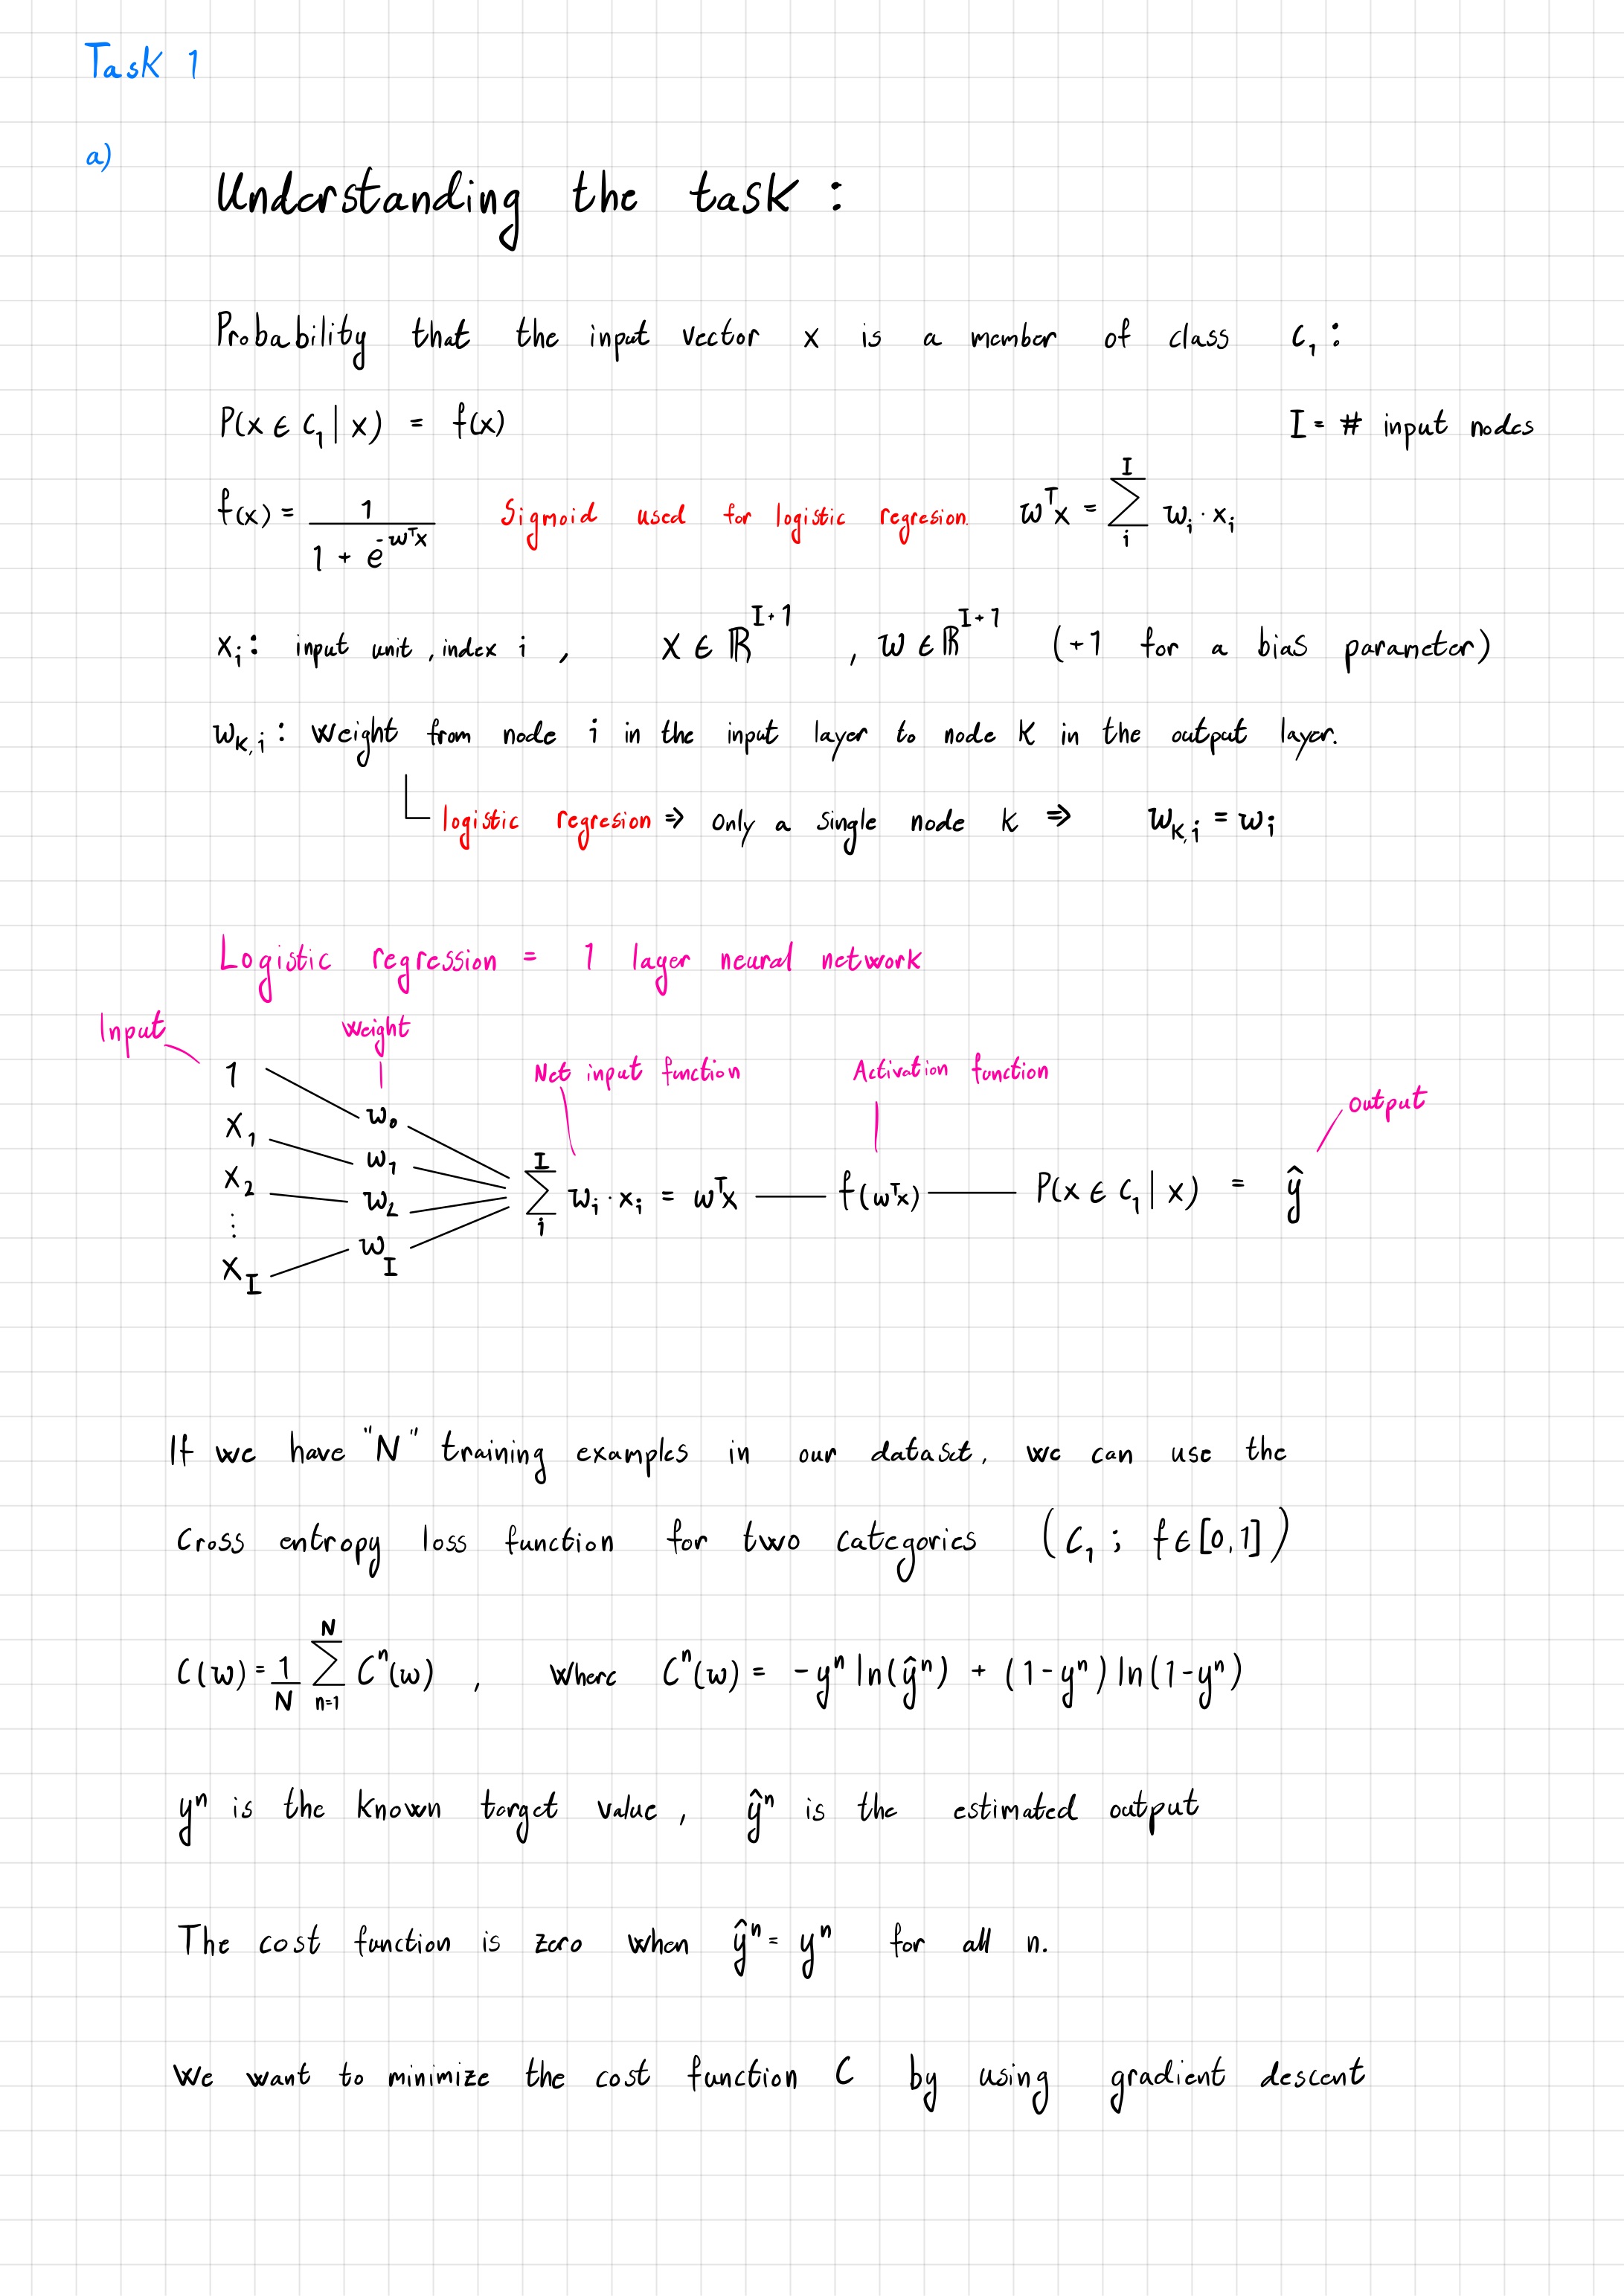 Task 1
a)
Understanding the task :
Probability that the input vector x is a member of class C₁ :
P(x ∈ C₁ | x) = f(x)    I = # input nodes
f(x) = 1 / (1 + e^(-wᵀx))    Sigmoid used for logistic regresion.    wᵀx = Σ_i^I w_i · x_i
x_i : input unit, index i ,    x ∈ ℝ^(I+1) , w ∈ ℝ^(I+1)    (+1 for a bias parameter)
w_k,i : Weight from node i in the input layer to node k in the output layer.
logistic regresion ⇒ only a single node k ⇒ w_k,i = w_i
Logistic regression = 1 layer neural network
Input    Weight
Net input function    Activation function
Output
1    w₀
x₁    w₁
x₂    w₂    Σ_i^I w_i · x_i = wᵀx — f(wᵀx) — P(x ∈ C₁ | x) = ŷ
⋮
x_I    w_I
If we have "N" training examples in our dataset, we can use the
Cross entropy loss function for two categories (C₁ ; f ∈ [0,1])
C(w) = 1/N Σ_(n=1)^N Cⁿ(w) ,    where Cⁿ(w) = -yⁿ ln(ŷⁿ) + (1-yⁿ) ln(1-yⁿ)
yⁿ is the known target value, ŷⁿ is the estimated output
The cost function is zero when ŷⁿ = yⁿ for all n.
We want to minimize the cost function C by using gradient descent